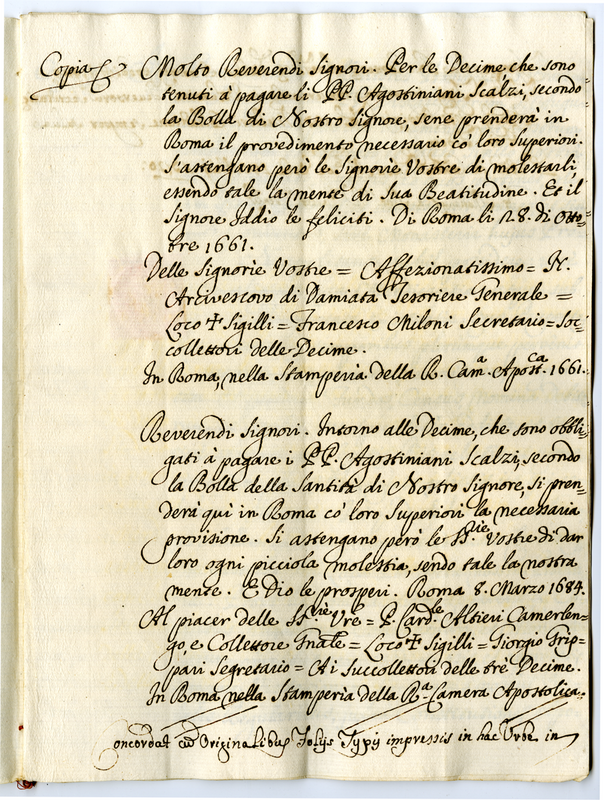 Copia Molto Reverendi Signori. Per le Decime, che sono
tenuti à pagare li PP. Agostiniani Scalzi, secondo
la Bolla di Nostro Signore, sene prenderà in
Roma il provedimento necessario co' loro Superiori.
S'astengano però le Signorie Vostre di molestarli,
essendo tale la mente di Sua Beatitudine. Et il
Signore Iddio le feliciti. Di Roma li 28. di Otto=
bre 1661.
Delle Signorie Vostre = Affezionatissimo = N.
Arcivescovo di Damiata Tesoriere Generale =
Loco + Sigilli = Francesco Miloni Secretario = Soc=
collettori delle Decime.
In Roma, nella Stamperia della R. Camª. Apostca. 1661.
Reverendi Signori. Intorno alle Decime, che sono obbli=
gati à pagare i PP. Agostiniani Scalzi, secondo
la Bolla della Santità di Nostro Signore, si pren=
derà quì in Roma co' loro Superiori la necessaria
provisione. Si astengano però le SSrie. Vostre di dar
loro ogni picciola molestia, sendo tale la nostra
mente. E Dio le prosperi. Roma 8. Marzo 1684.
Al piacer delle SSrie Vre = P. Cardle. Altieri Camerlen=
go, e Collettore Gnale = Loco + Sigilli = Giorgio Grip=
pari Segretario = Ai Succollettori delle trè Decime.
In Roma, nella Stamperia della Rª. Camera Apostolica.
Concordat cum Originalibus Folijs Typis impressis in hac Urbe in